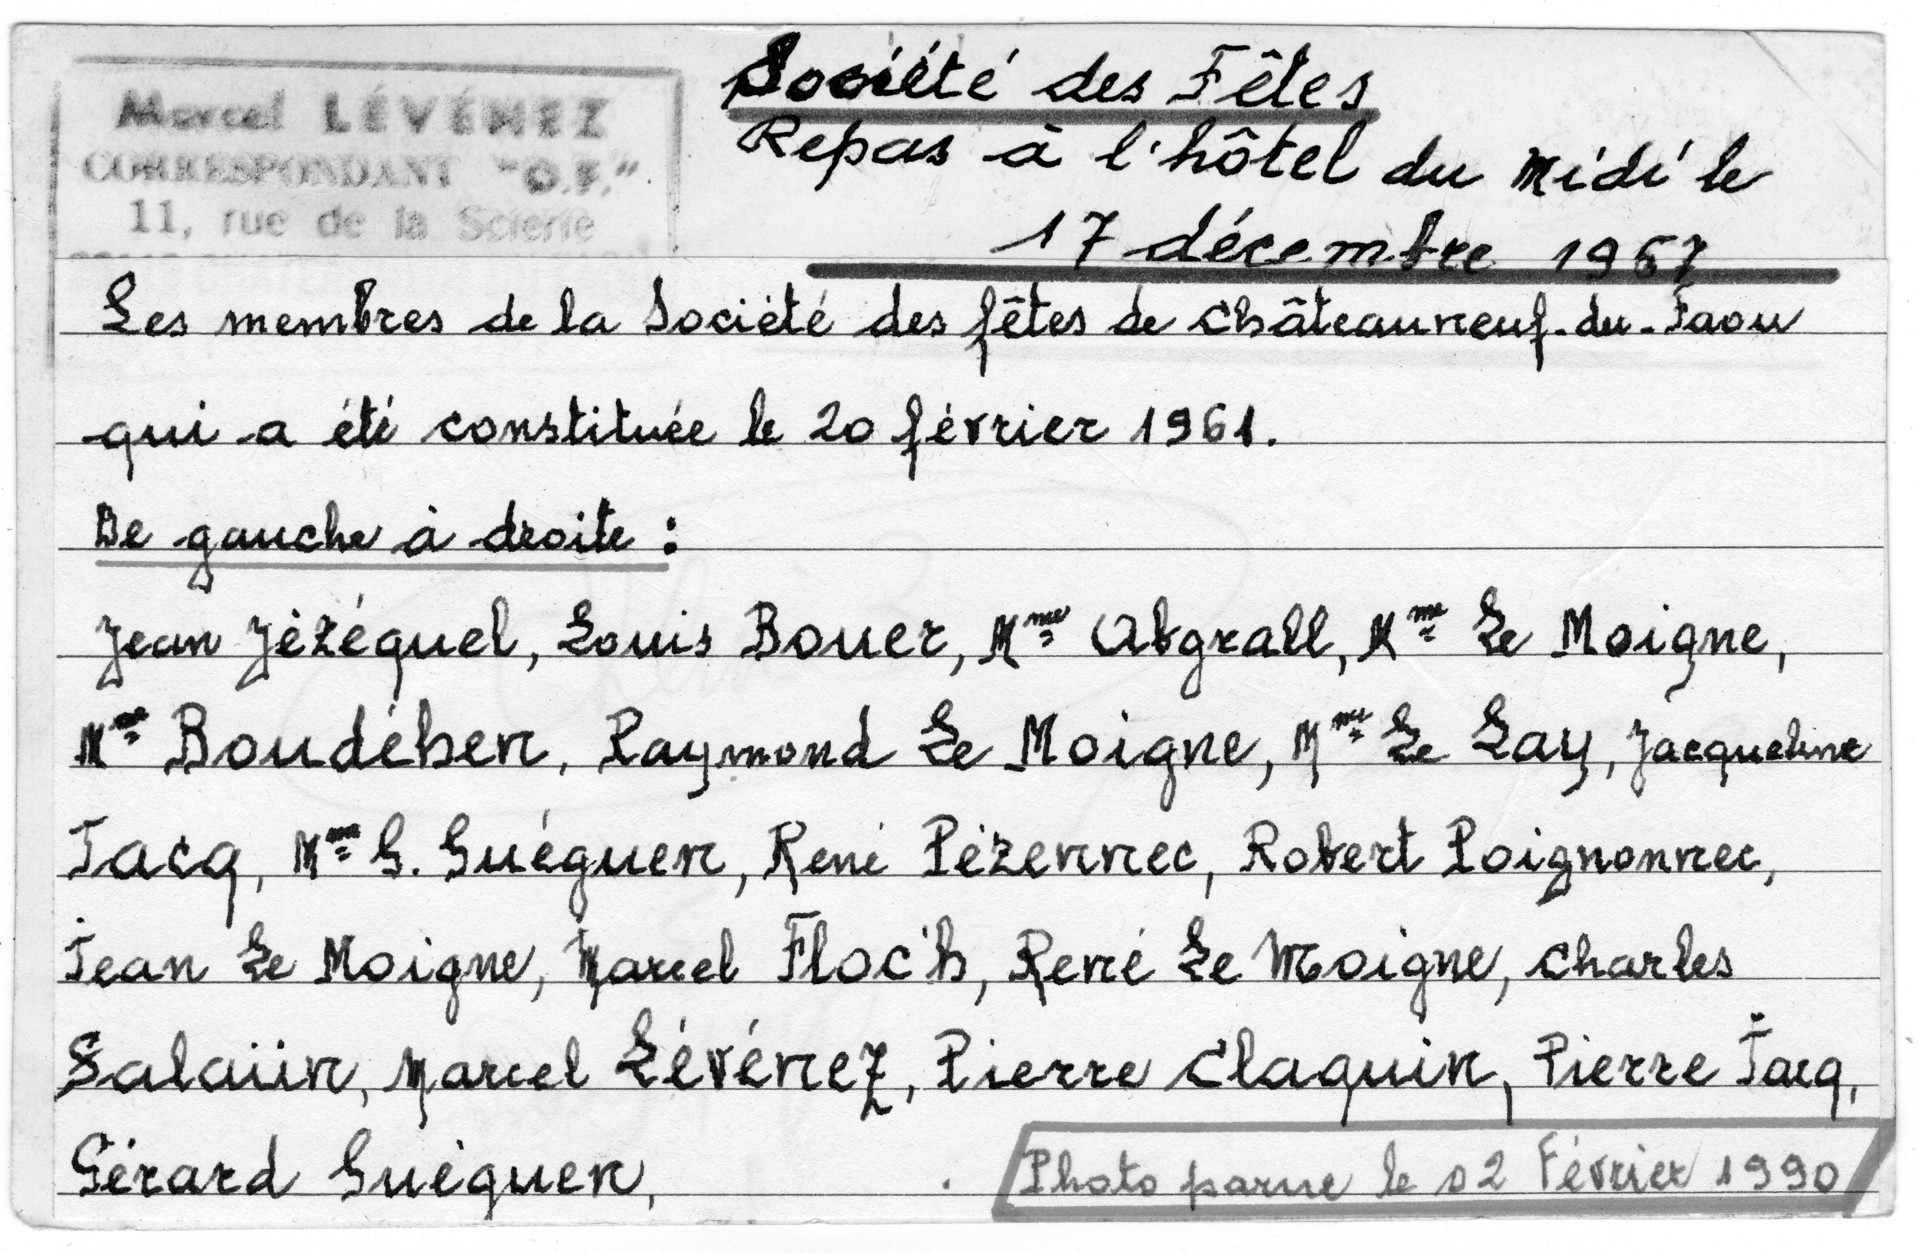 Marcel LÉVÉNEZ
CORRESPONDANT "O.F."
11, rue de la Scierie
Société des Fêtes
Repas à l'hôtel du Midi le
17 décembre 1967
Les membres de la Société des fêtes de Châteauneuf-du-Faou
qui a été constituée le 20 février 1961.
De gauche à droite :
Jean Jézéquel, Louis Bouer, Mme Abgrall, Mme Le Moigne,
Mme Boudéhen, Raymond Le Moigne, Mme Le Lay, Jacqueline
Tacq, Mme G. Guéguen, René Pézennec, Robert Poignonnec,
Jean Le Moigne, Marcel Floc'h, René Le Moigne, Charles
Salaün, Marcel Lévénez, Pierre Claquin, Pierre Jacq,
Gérard Guéguen,
Photo parue le 02 Février 1990